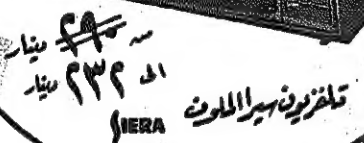 من ٢٩٠ دينار
الى ٢٣٢ دينار
تلفزيون سيرا الملون
SIERA